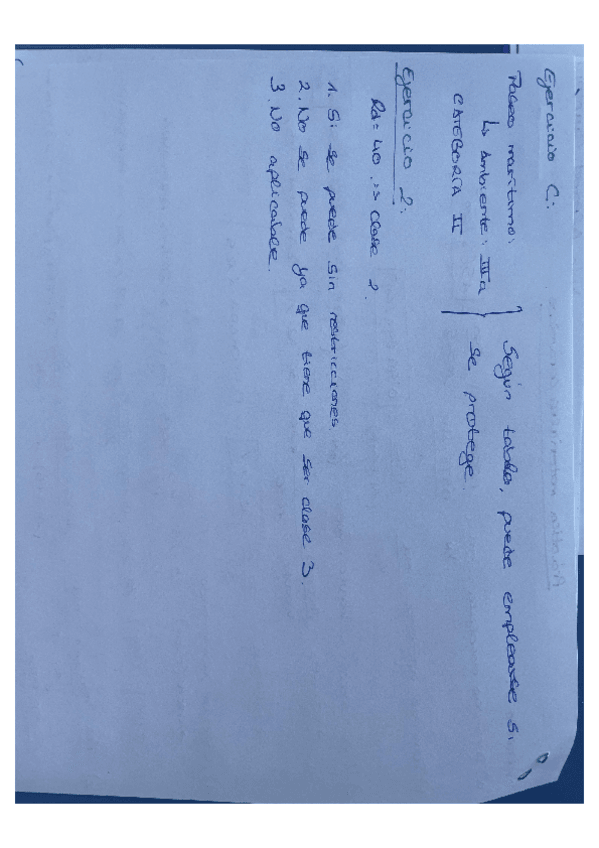 Ejercicio C:
Paseo marítimo:
↳ Ambiente: IIIa
CATEGORÍA II
Según tabla, puede emplearse si
se protege.
Ejercicio 2:
Rd = 40 => clase 2.
1. Si se puede sin restricciones
2. No se puede ya que tiene que ser clase 3.
3. No aplicable.